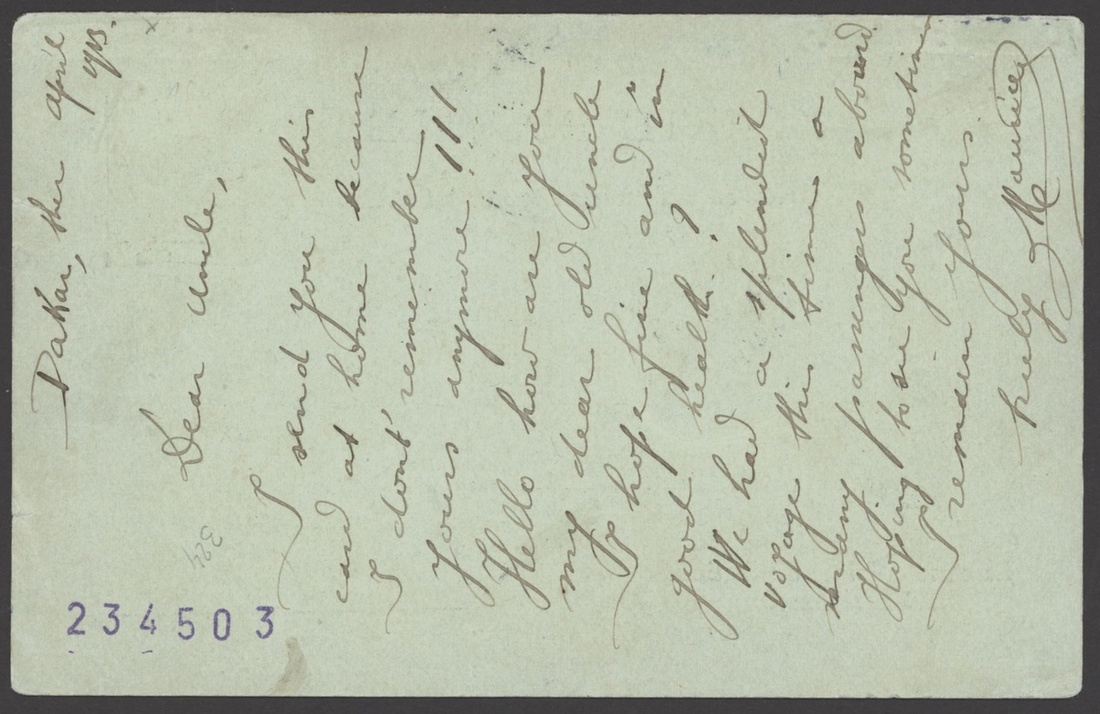 Dakar, the april
1913.
Dear Uncle,
I send you this
card at home because
I dont' remember
yours anymore !!!
Hello how are you
my dear old uncle
I hope fine and in
good health ?
We had a splendit
voyage this time a
many passengers aboard
Hoping to see you sometimes
I remain yours
truly Maurice
324
234503